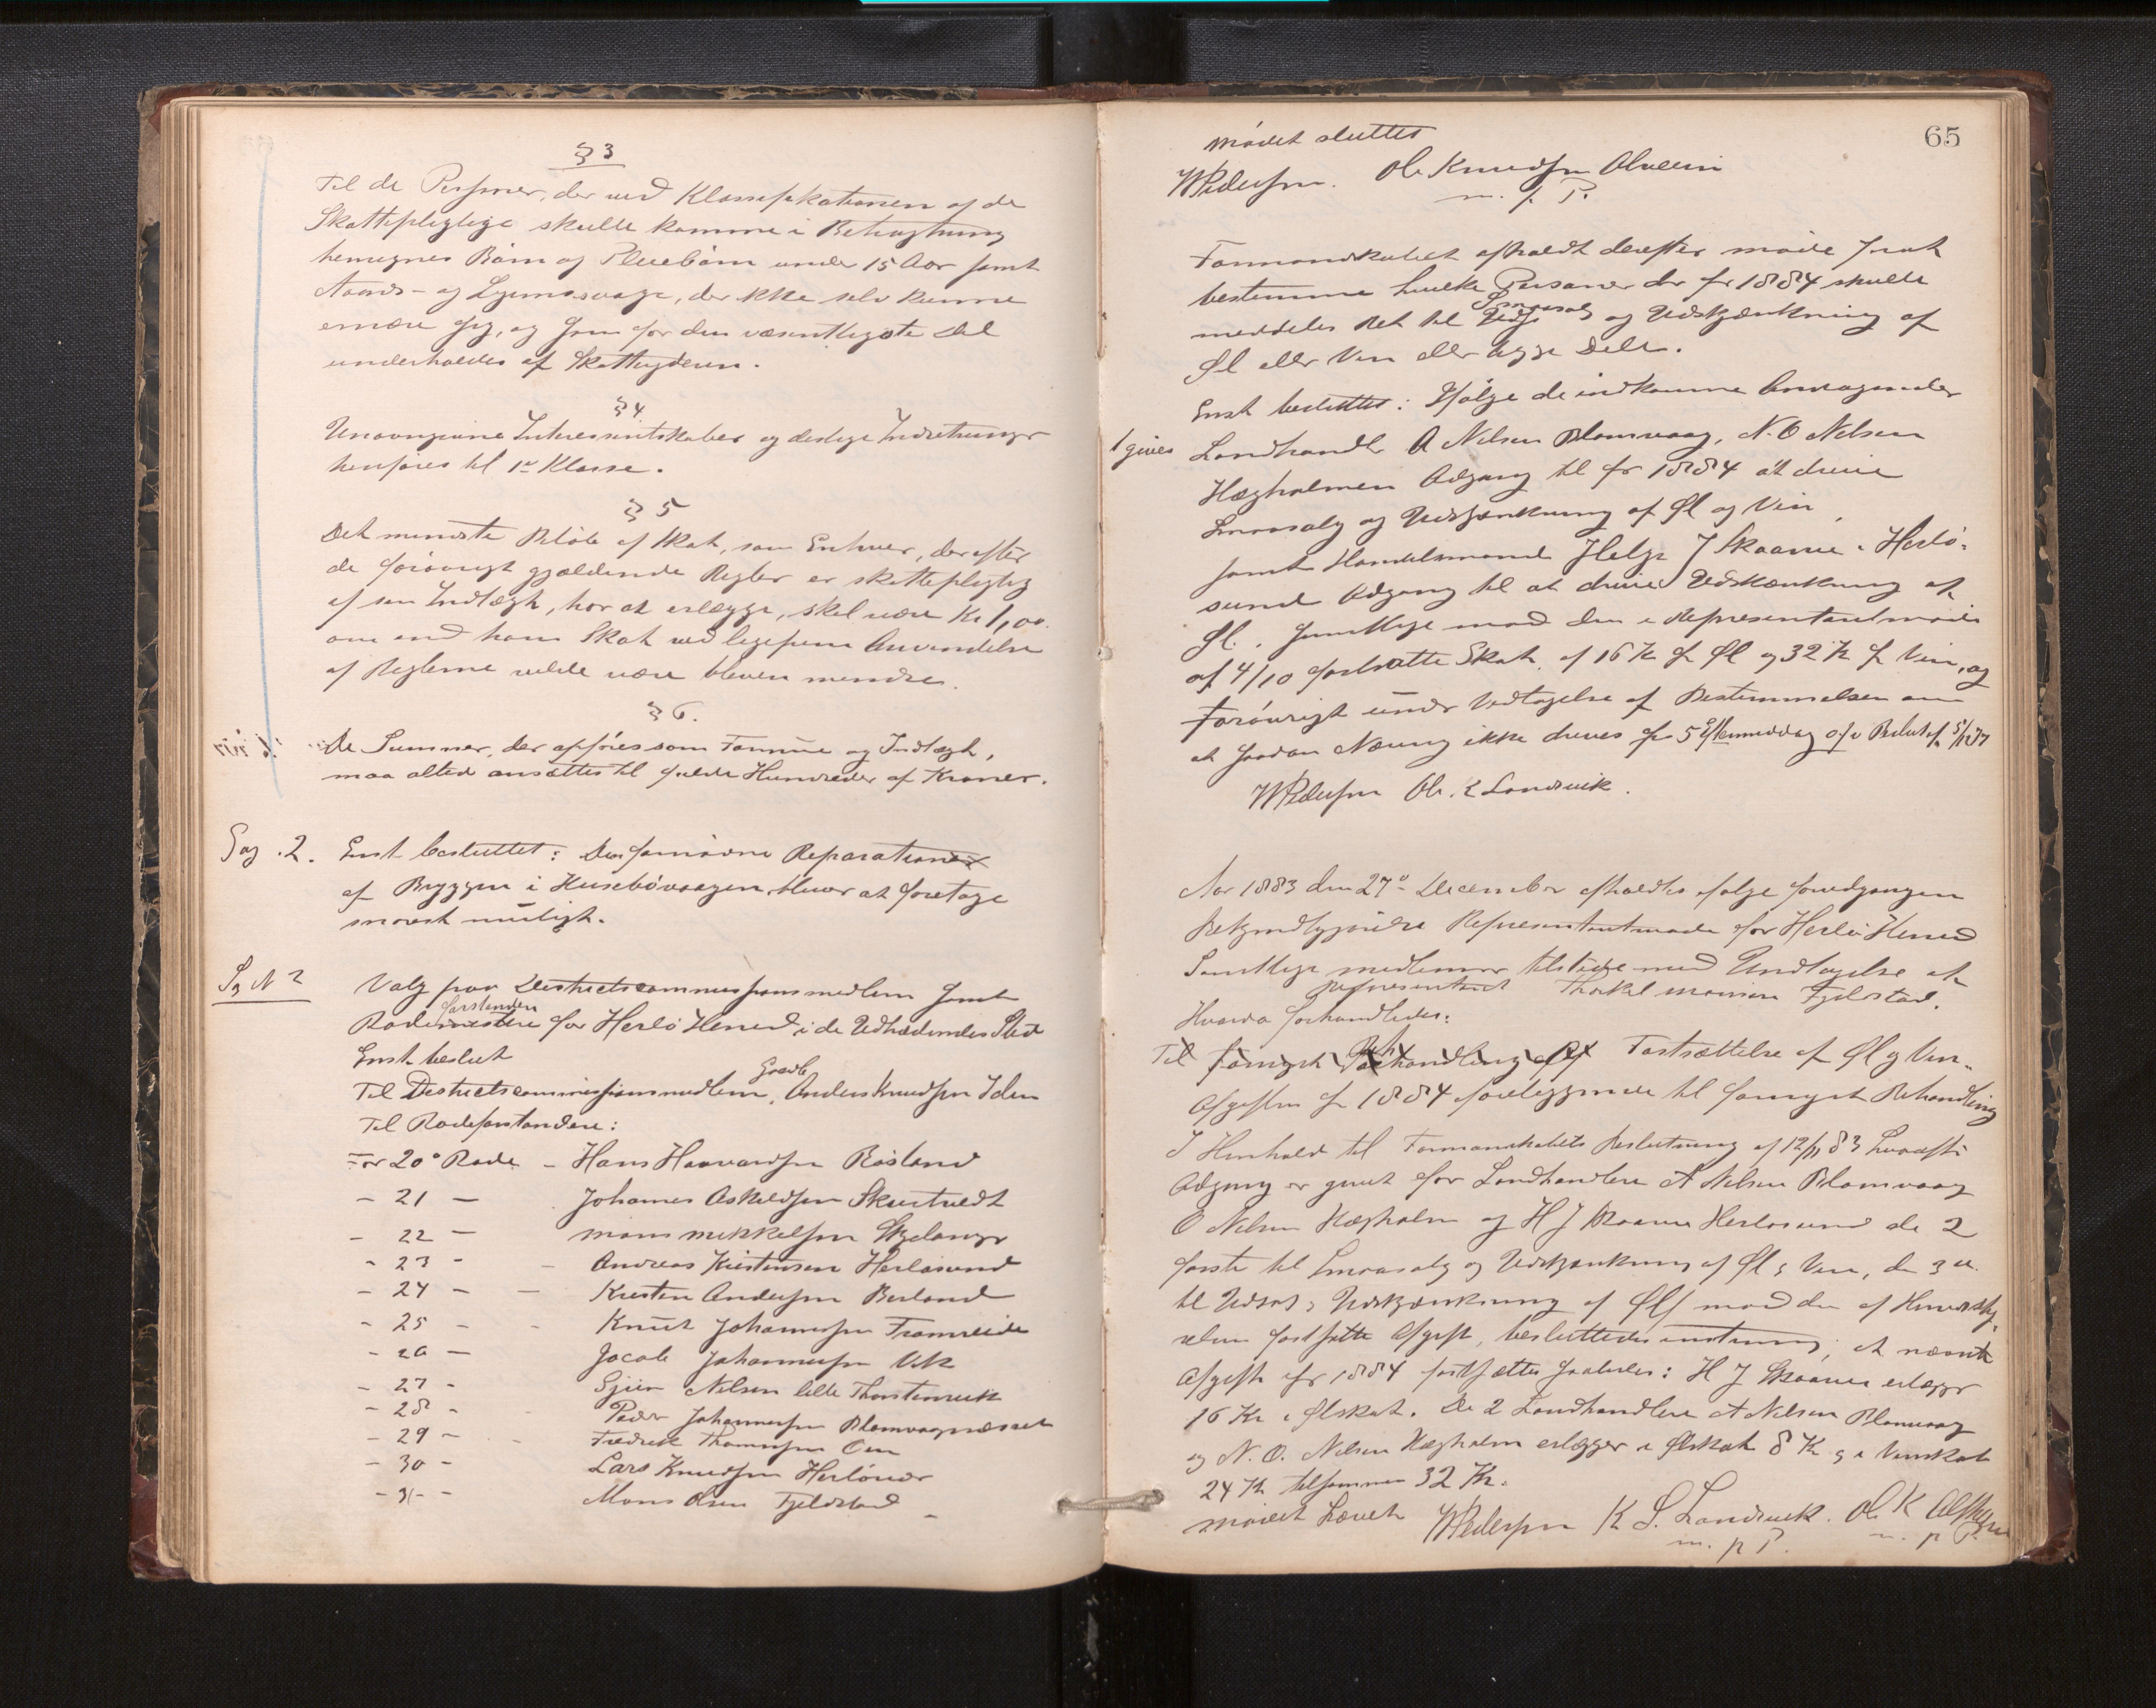 § 3
Til de Personer, der ved Klassifikationen af de
Skattepligtige skulle komme i Betragtning
henregnes Børn og Pleiebørn under 15 Aar samt
Aands- og Legemssvage, der ikke selv kunne
ernære sig, og som for den væsentligste Del
underholdes af Skatteyderen.
§ 4
Uanonyme Interessentskaber og deslige Indretninger
henføres til 1ste Klasse.
§ 5
Det mindste Beløb af Skat, som Enhver, der efter
de forøvrigt gjældende Regler er skattepligtig
af sin Indtægt, har at erlægge, skal være Kr 1,00
om end hans Skat ved ligefrem Anvendelse
af Reglerne vilde være bleven mindre.
§ 6.
De Summer, der opføres som Formue og Indtægt,
maa altid ansættes til fulde Hundreder af Kroner.
Sag .2. Enst besluttet: Den fornødne Reparation
af Bryggen i Husebøvaagen bliver at foretage
snarest muligt.
Sag N 2 Valg paa Districtscommissionsmedlem samt
Rodeforstandere for Herlø Herred i de Udtrædendes Sted
Enst beslut
Til Districtscommissionsmedlem, Gaardb Anders Knudsen Iden
Til Rodeforstandere:
For 20de Rode – Hans Haavardsen Røsland
– 21 – Johannes Askeldsen Skurtvedt
– 22 – Mons Mikkelsen Skjelanger
– 23 – Andreas Kristensen Herløsund
– 24 – – Kristen Andersen Berland
– 25 – – Knut Johannessen Tromreide
– 26 – Jacob Johannessen Vik
– 27 – Nilsen lille Thorsteinsvik
– 28 – Peder Johannessen Blomvaagnæsset
– 29 – Fredrik Thomassen Oen
– 30 – Lars Knudsen Herløvær
– 31 – Mons Olsen Fjeldstad
65
Mødet sluttet
WPedersen. Ole Knudsen Alveim
m. p. P.
Formandskabet afholdt derefter møde for at
bestemme hvilke Personer der for 1884 skulle
meddeles Ret til Smaasalg og Udskjænkning af
Øl eller Vin eller begge Dele.
Enst besluttet: Ifølge de indkomne Andragender
1 gives Landhandle A Nilsen Blomvaag, N. O Nilsen
Hægholmen Adgang til for 1884 at drive
Smaasalg og Udskjænkning af Øl og Vin
samt Handelsmand Helge J Skaanes i Herlø-
sund Adgang til at drive Udskænkning af
Øl. samtlige mod den i Representantmøde
af 4/10 fastsatte Skat af 16 Kr f Øl og 32 Kr f Vin, og
Forøvrigt under Vedtagelse af Bestemmelsen om
at saadan Næring ikke drives før 5 Eftermiddag
WPedersen Ole. K Landsvik.
Aar 1883 den 27de December afholdtes ifølge foregangen
Bekjendtgjørelse Representantmøde for Herlø Herred
Samtlige medlemmer tilstede med Undtagelse af
Representant Thorkel Monsen Fjeldstad.
Hvorda forhandledes:
Til fornyet Behandling af Fastsættelse af Øl og Vin-
Afgiften for 1884 foreliggende til fornyet Behandling
I Henhold til Formanskabets Beslutning af 12/11 83 hvorefter
Adgang er givet for Landhandlere A Nilsen Blomvaag
O Nilsen Hægholm og H J Skaanes Herløsund de 2
første til Smaasalg og Udskjænkning af Øl og Vin, den 3die
til Udsalg og Udskjænkning af Øl mod den af Herredsty-
relsen fastsatte Afgift, besluttedes enstemmig, at nævnte
Afgift for 1884 fastsættes saaledes: H J Skaanes erlægger
16 Kr i Ølskat. De 2 Landhandlere A Nilsen Blomvaag
og N. O. Nilsen Hægholm erlægger i Ølskat 8 Kr og i Vinskat
24 Kr tilsammen 32 Kr.
Mødet hævet WPedersen K S. Landsvik. Ole K
m. p P. m. p P.